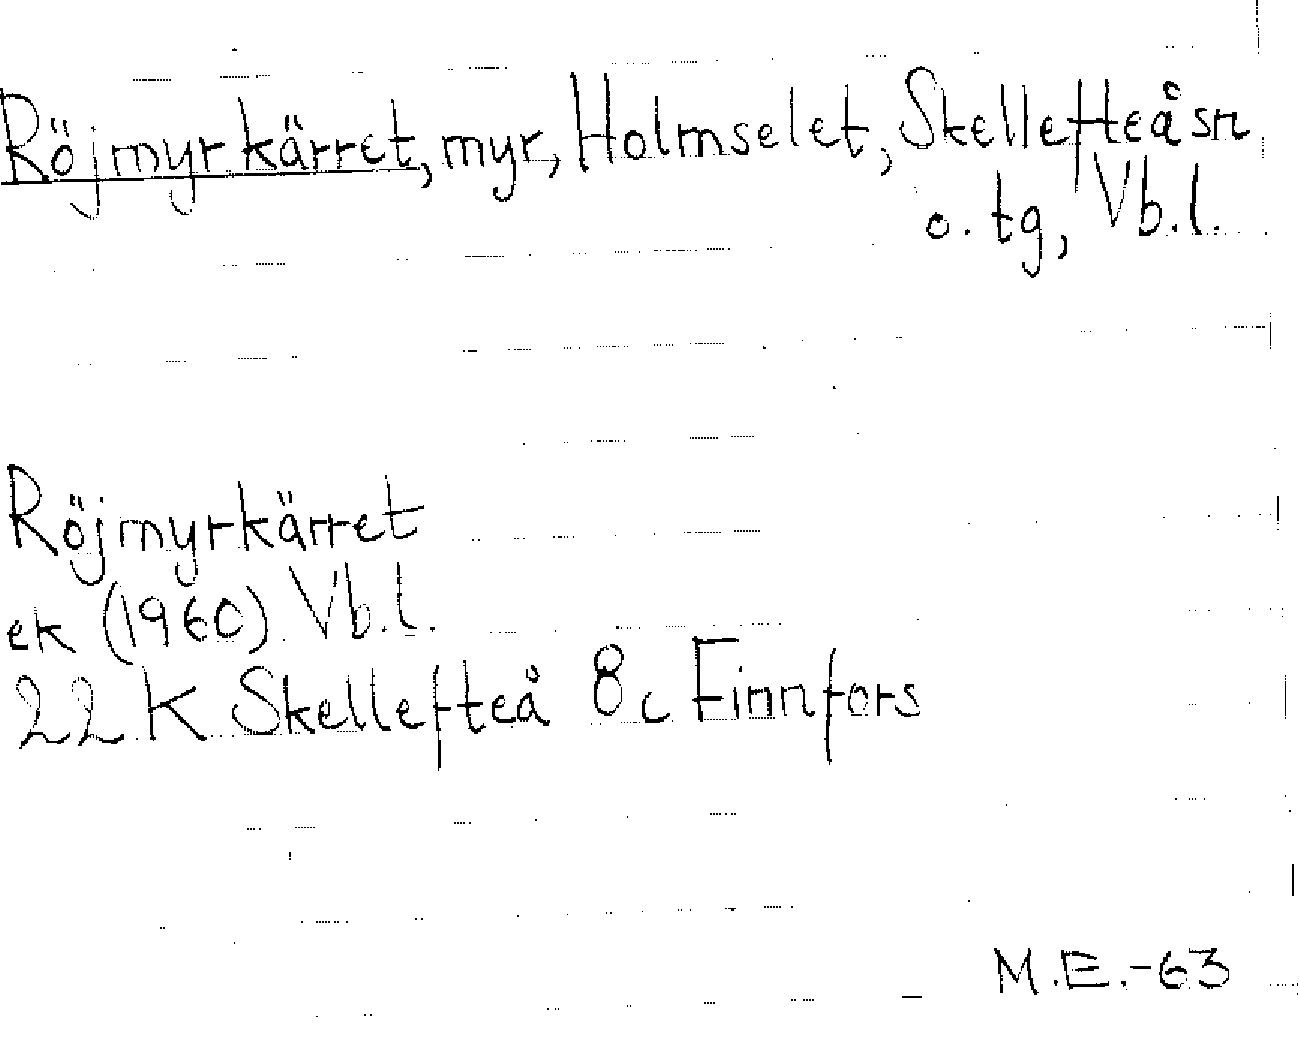 Röjmyrkärret, myr, Holmselet, Skellefteå sn
o. tg, Vb.l.
Röjmyrkärret
ek (1960) Vb.l.
22 K Skellefteå 8c Finnfors
M.E.-63